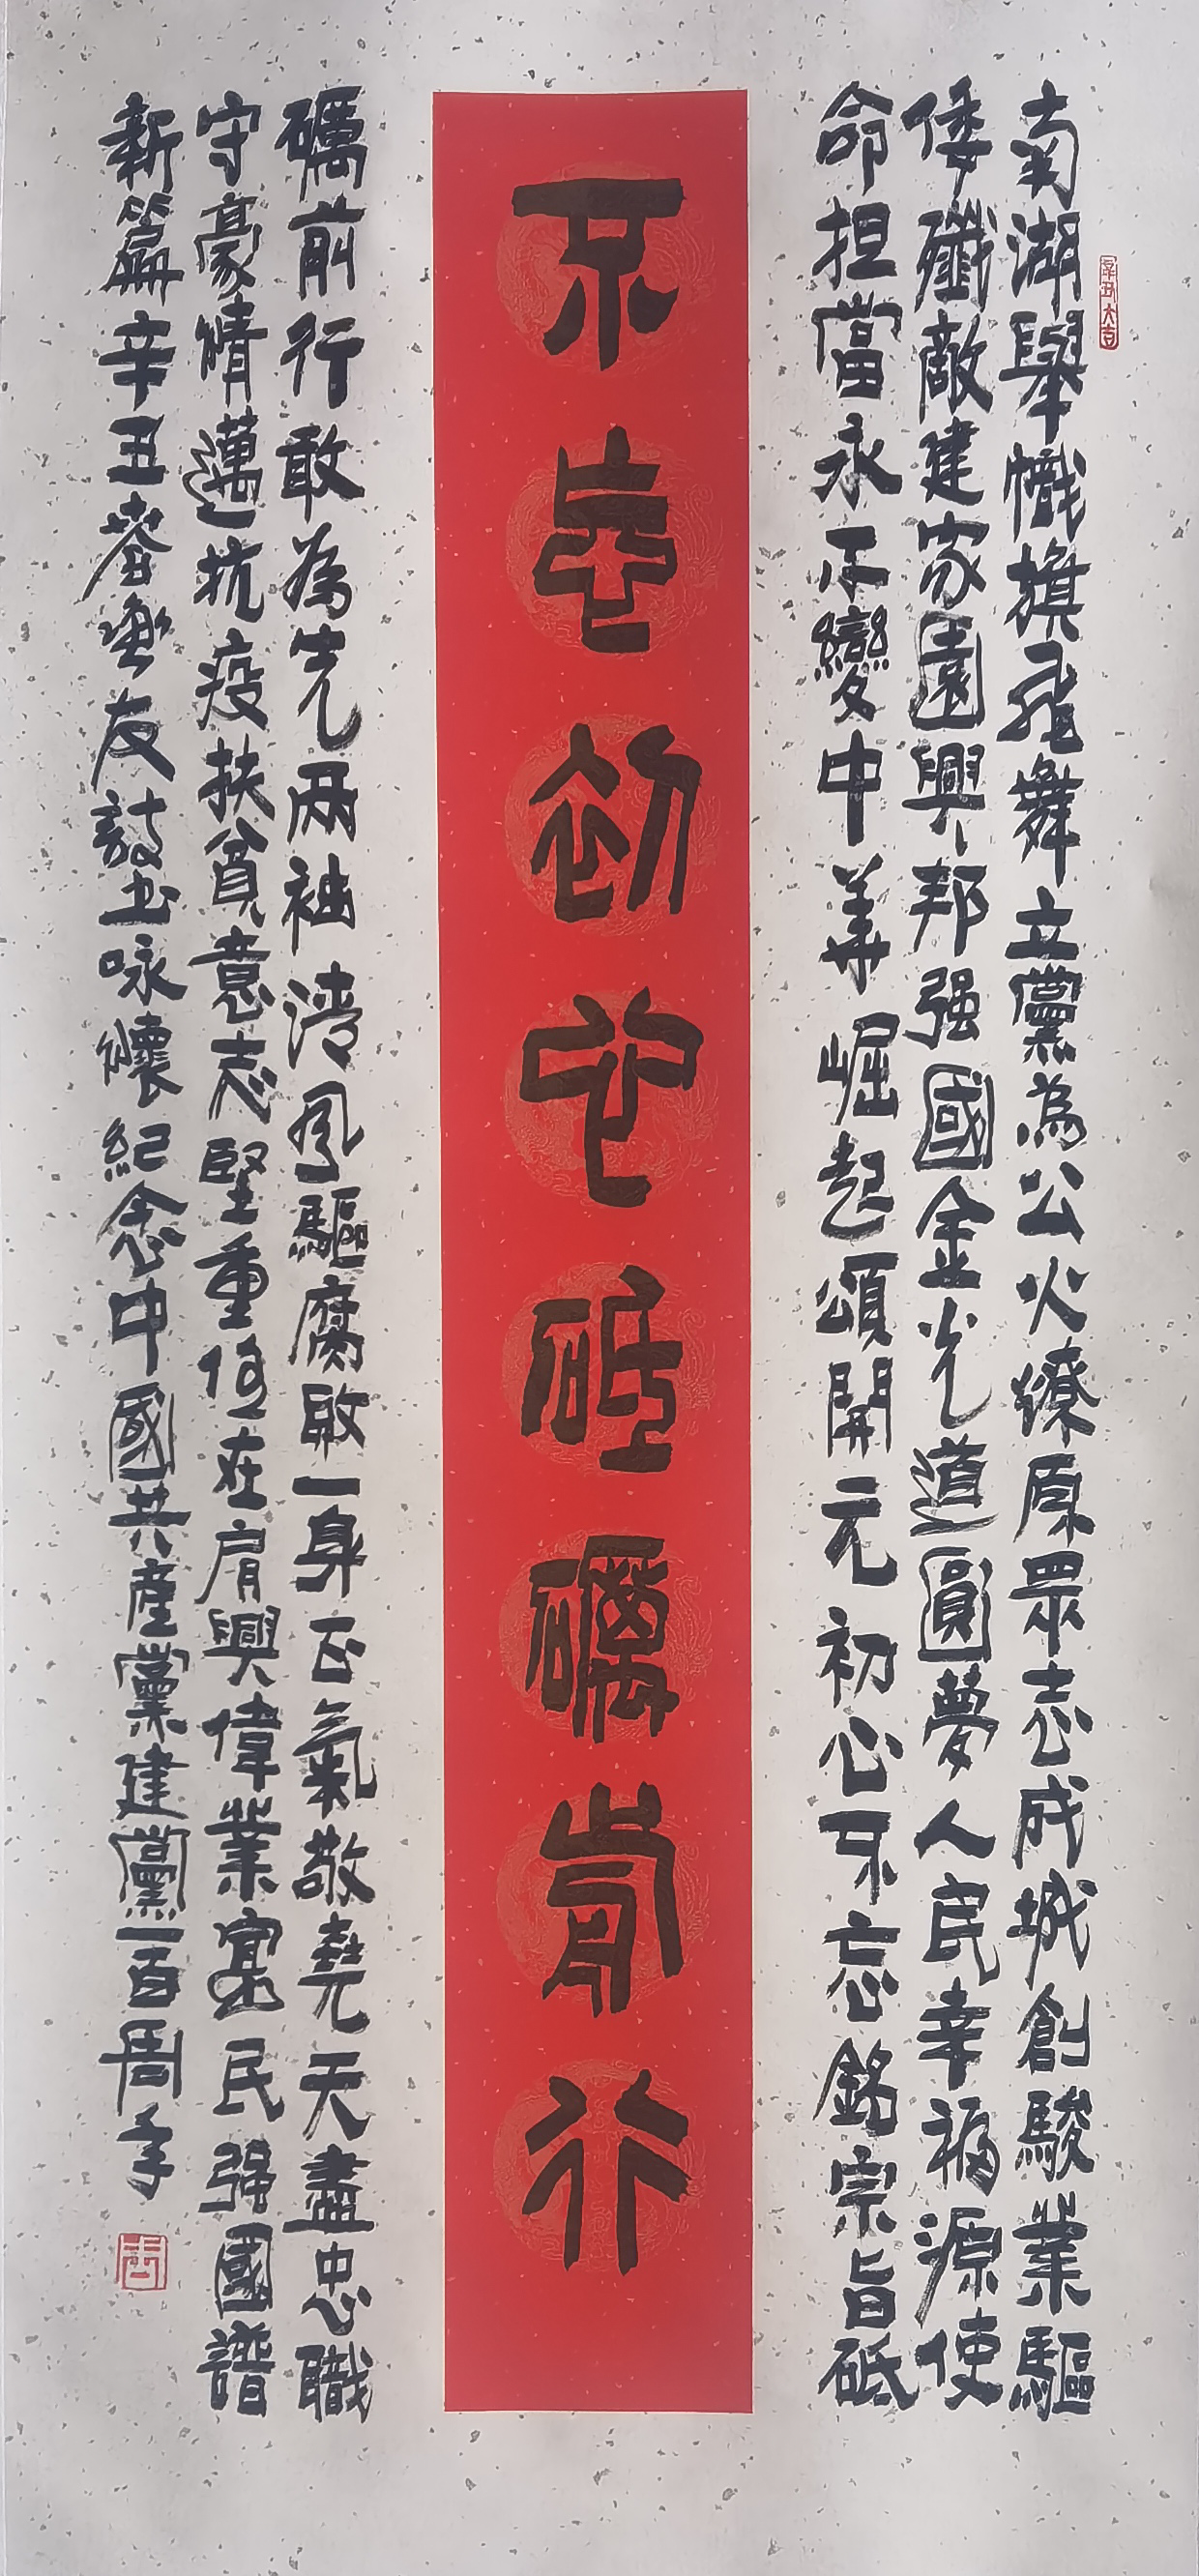 南湖舉幟旗飛舞立黨為公火燎原眾志成城創駿業驅
倭殲敵建家園興邦强國金光道圓夢人民幸福源使
命担當永不變中華崛起頌開元初心不忘銘宗旨砥
不忘初心砥礪前行
礪前行敢為先兩袖清風驅腐敗一身正氣敬堯天盡忠職
守豪情邁抗疫扶貧意志堅重任在肩興偉業富民强國譜
新篇辛丑春 友 書咏懷紀念中國共產黨建黨一百周年
辛丑大吉